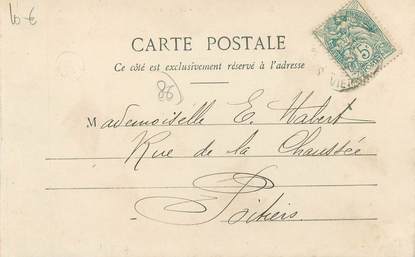 10 €
CARTE POSTALE
Ce côté est exclusivement réservé à l'adresse
5
86
Mademoiselle E. Habert
Rue de la Chaussée
Poitiers